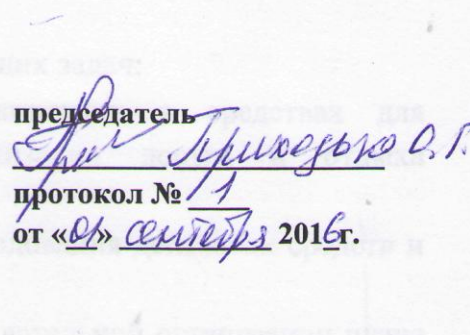 председатель
Приходько О. Г.
протокол № 1
от «01» сентября 2016г.